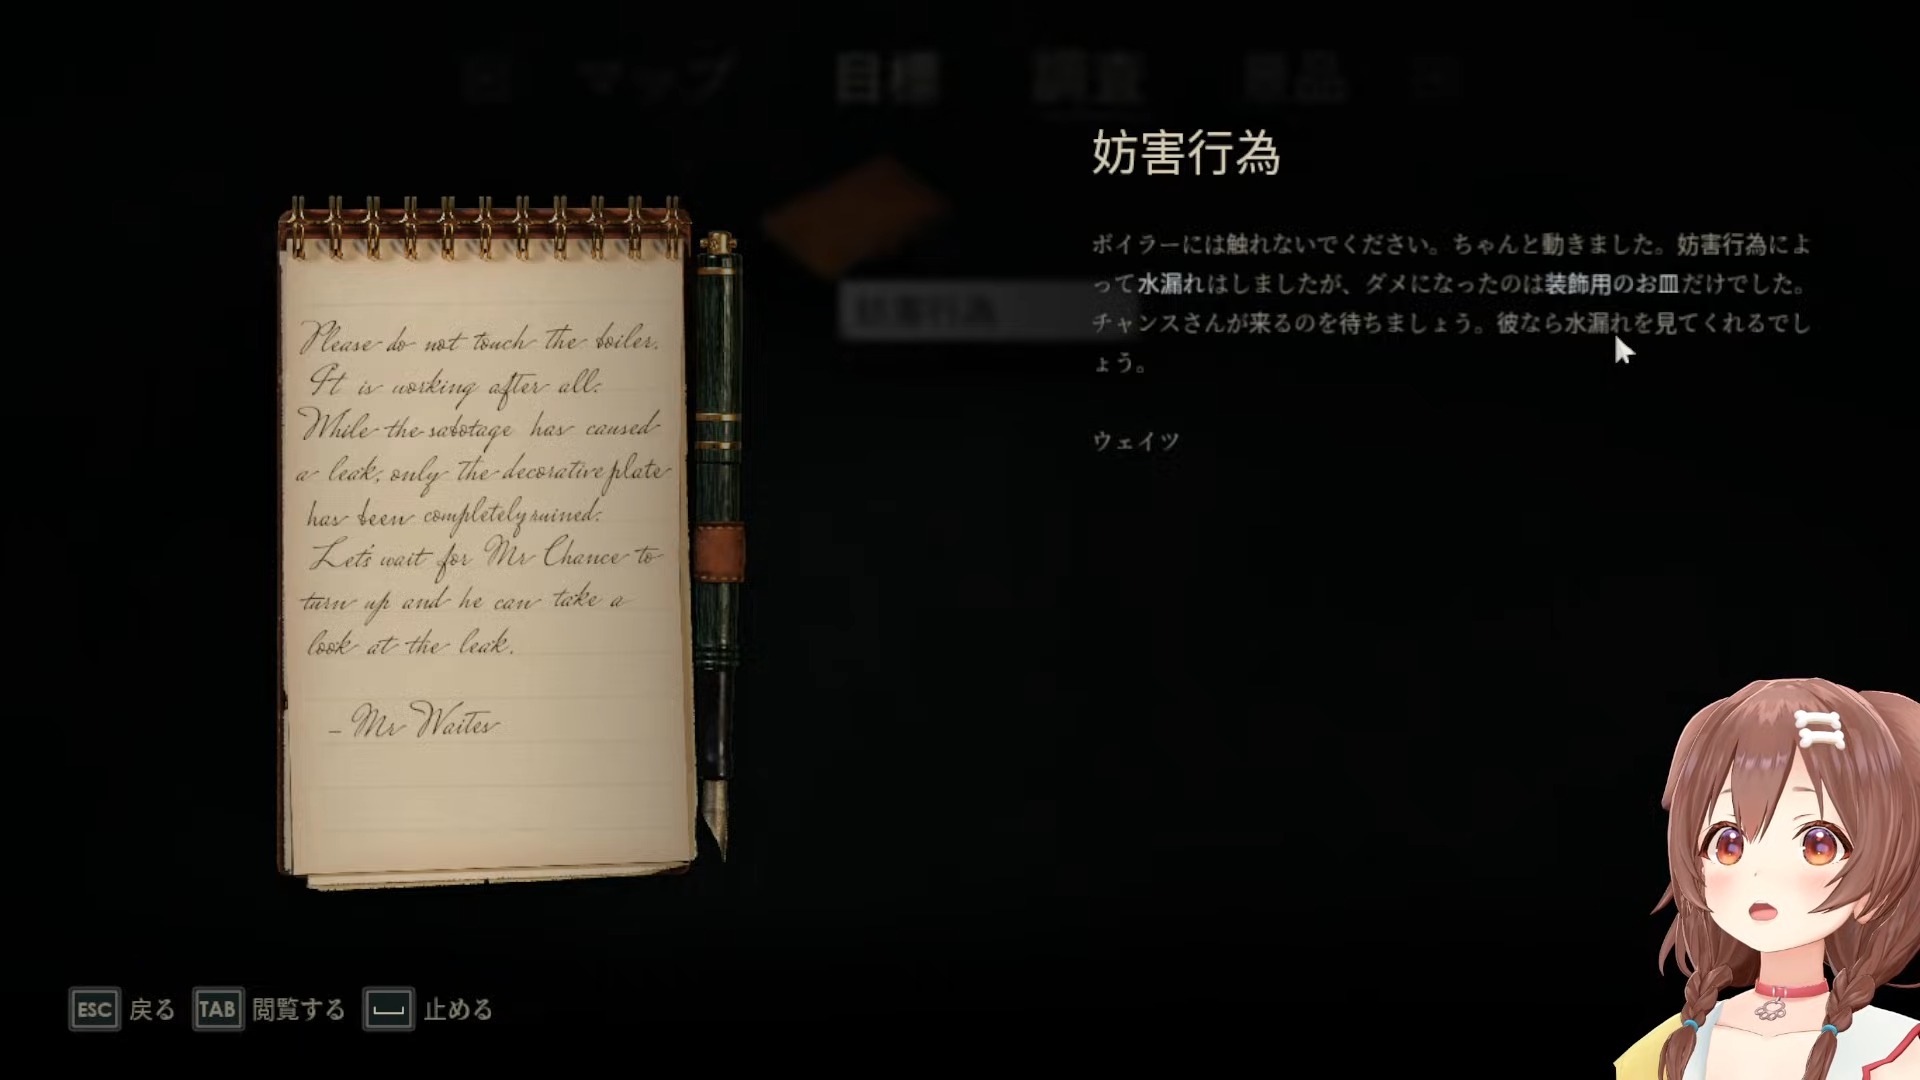 マップ
目標
調査
妨害行為
ボイラーには触れないでください。ちゃんと動きました。妨害行為によ
って水漏れはしましたが、ダメになったのは装飾用のお皿だけでした。
チャンスさんが来るのを待ちましょう。彼なら水漏れを見てくれるでし
ょう。
ウェイツ
妨害行為
Please do not touch the boiler.
It is working after all.
While the sabotage has caused
a leak, only the decorative plate
has been completely ruined.
Let's wait for Mr Chance to
turn up and he can take a
look at the leak.
- Mr Waites
ESC 戻る TAB 閲覧する 止める